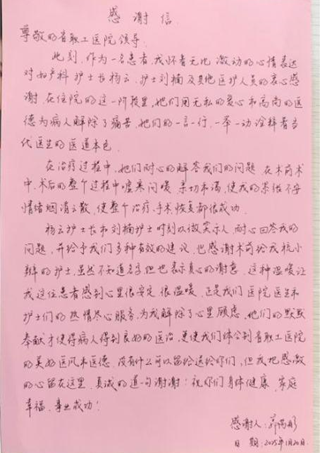 感谢信
尊敬的首职工医院领导:
此刻,作为一名患者,我怀着无比激动的心情表达
对妇产科护士长杨云,护士刘楠及其他医护人员的衷心感
谢。在住院的这一阶段里,她们用无私的爱心和高尚的医
德为病人解除了痛苦,她们的一言一行,一举一动诠释着当
代医生的医道本色。
在治疗过程中,她们耐心的解答我们的问题,在术前术
中,术后的整个过程中嘘寒问暖,亲切和蔼,使我的紧张不安
情绪烟消云散,使整个治疗,手术恢复都很成功。
杨云护士长和刘楠护士时刻以微笑示人,耐心回答我的
问题,并给予我们多种有效的建议,也感谢术前给我梳小
辫的护士,虽然不知道名字但也表示真心的谢意,这种温暖让
我这位患者感到心里很安定,很温暖,正是我们医院医生和
护士们的热情尽心服务,为我解除了心里顾虑,他们的默默
奉献才使得病人得到良好的医治,更使我们体会到首职工医院
的美好医风和医德,没有什么可以留给送给你们,但我把感激
的心留在这里,真诚的道一句谢谢!祝好们身体健康,家庭
幸福,事业成功!
感谢人:
日期: